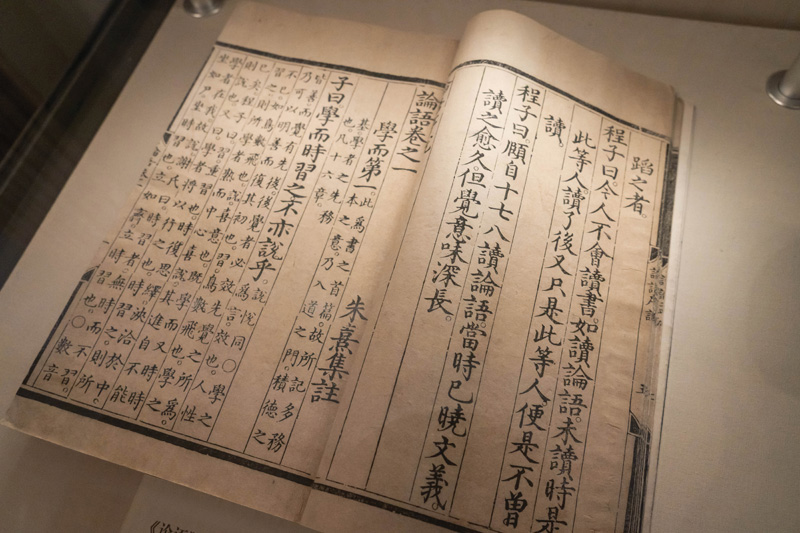 蹈之者。
程子曰。今人不會讀書。如讀論語。未讀時是
此等人。讀了後又只是此等人。便是不曾
讀。
程子曰。頤自十七八讀論語。當時已曉文義。
讀之愈久。但覺意味深長。
論語卷之一
朱熹集註
學而第一。此為書之首篇。故所記多務
本之意。乃入道之門。積德之
基。學者之先務
也。凡十六章。
子曰學而時習之不亦說乎。說悅同〇學之
為言效也。人性
皆善而覺有先後。後覺者必效先覺之所為。
乃可以明善而復其初也。習鳥數飛也。學之
不已。如鳥數飛也。說喜意也。既學而又時時
習之。則所學者熟而中心喜說。其進自不能
已矣。程子曰。習重習也。時復思繹浹洽於中。
則說也。又曰。學者將以行之也。時習之則所
學者在我故說。謝氏曰。時習者無時而不習。
坐如尸坐時習也。立如齊立時習也。〇數音